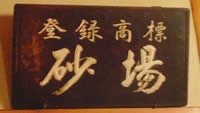 登録商標
砂場